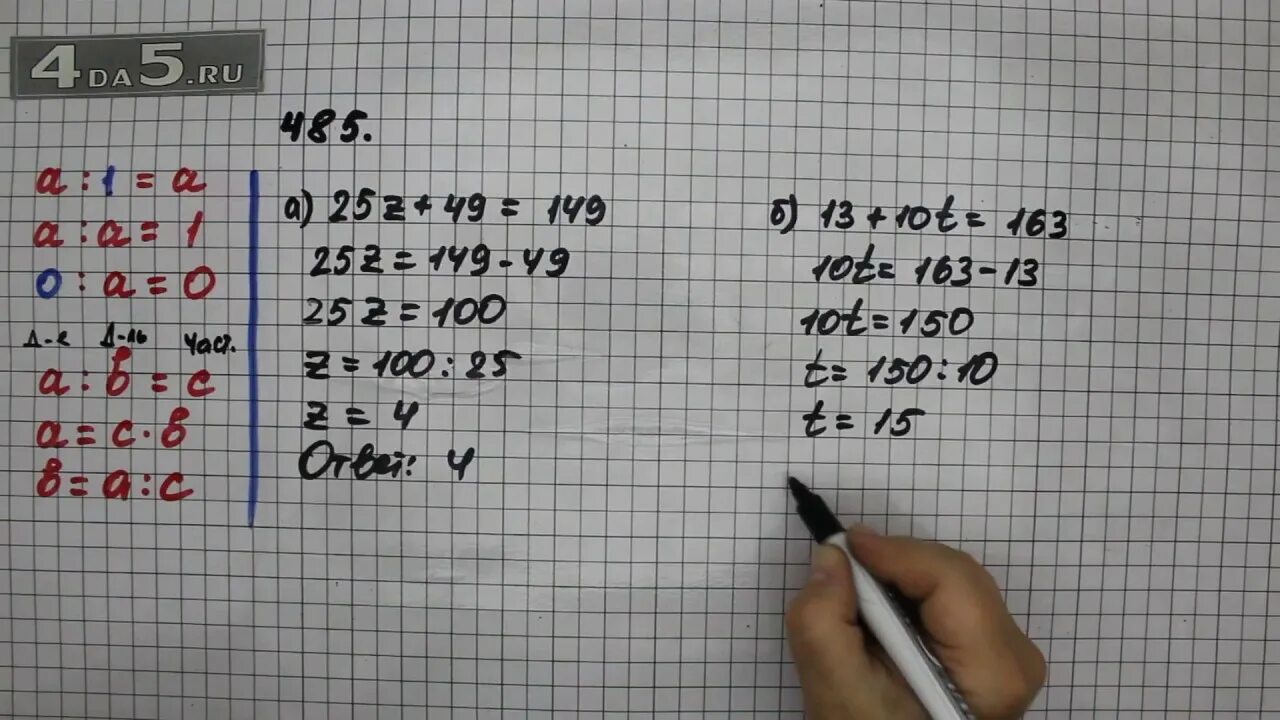 4DA5.RU
485.
a : 1 = a
a : a = 1
0 : a = 0
Д-е Д-ль Част.
a : в = c
a = c · в
в = a : c
а) 25z + 49 = 149
25z = 149 - 49
25z = 100
z = 100 : 25
z = 4
Ответ: 4
б) 13 + 10t = 163
10t = 163 - 13
10t = 150
t = 150 : 10
t = 15